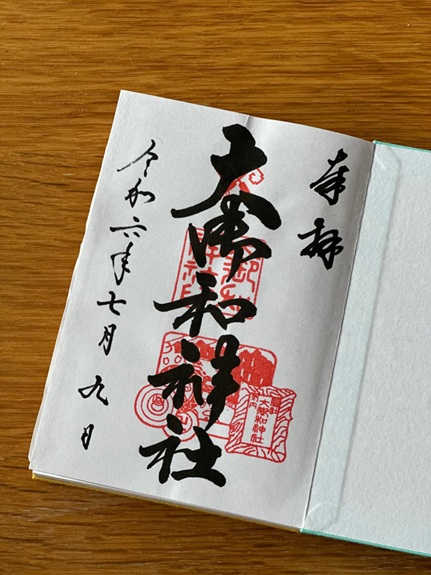 奉拝
大御和神社
大御和神社
令和六年七月九日